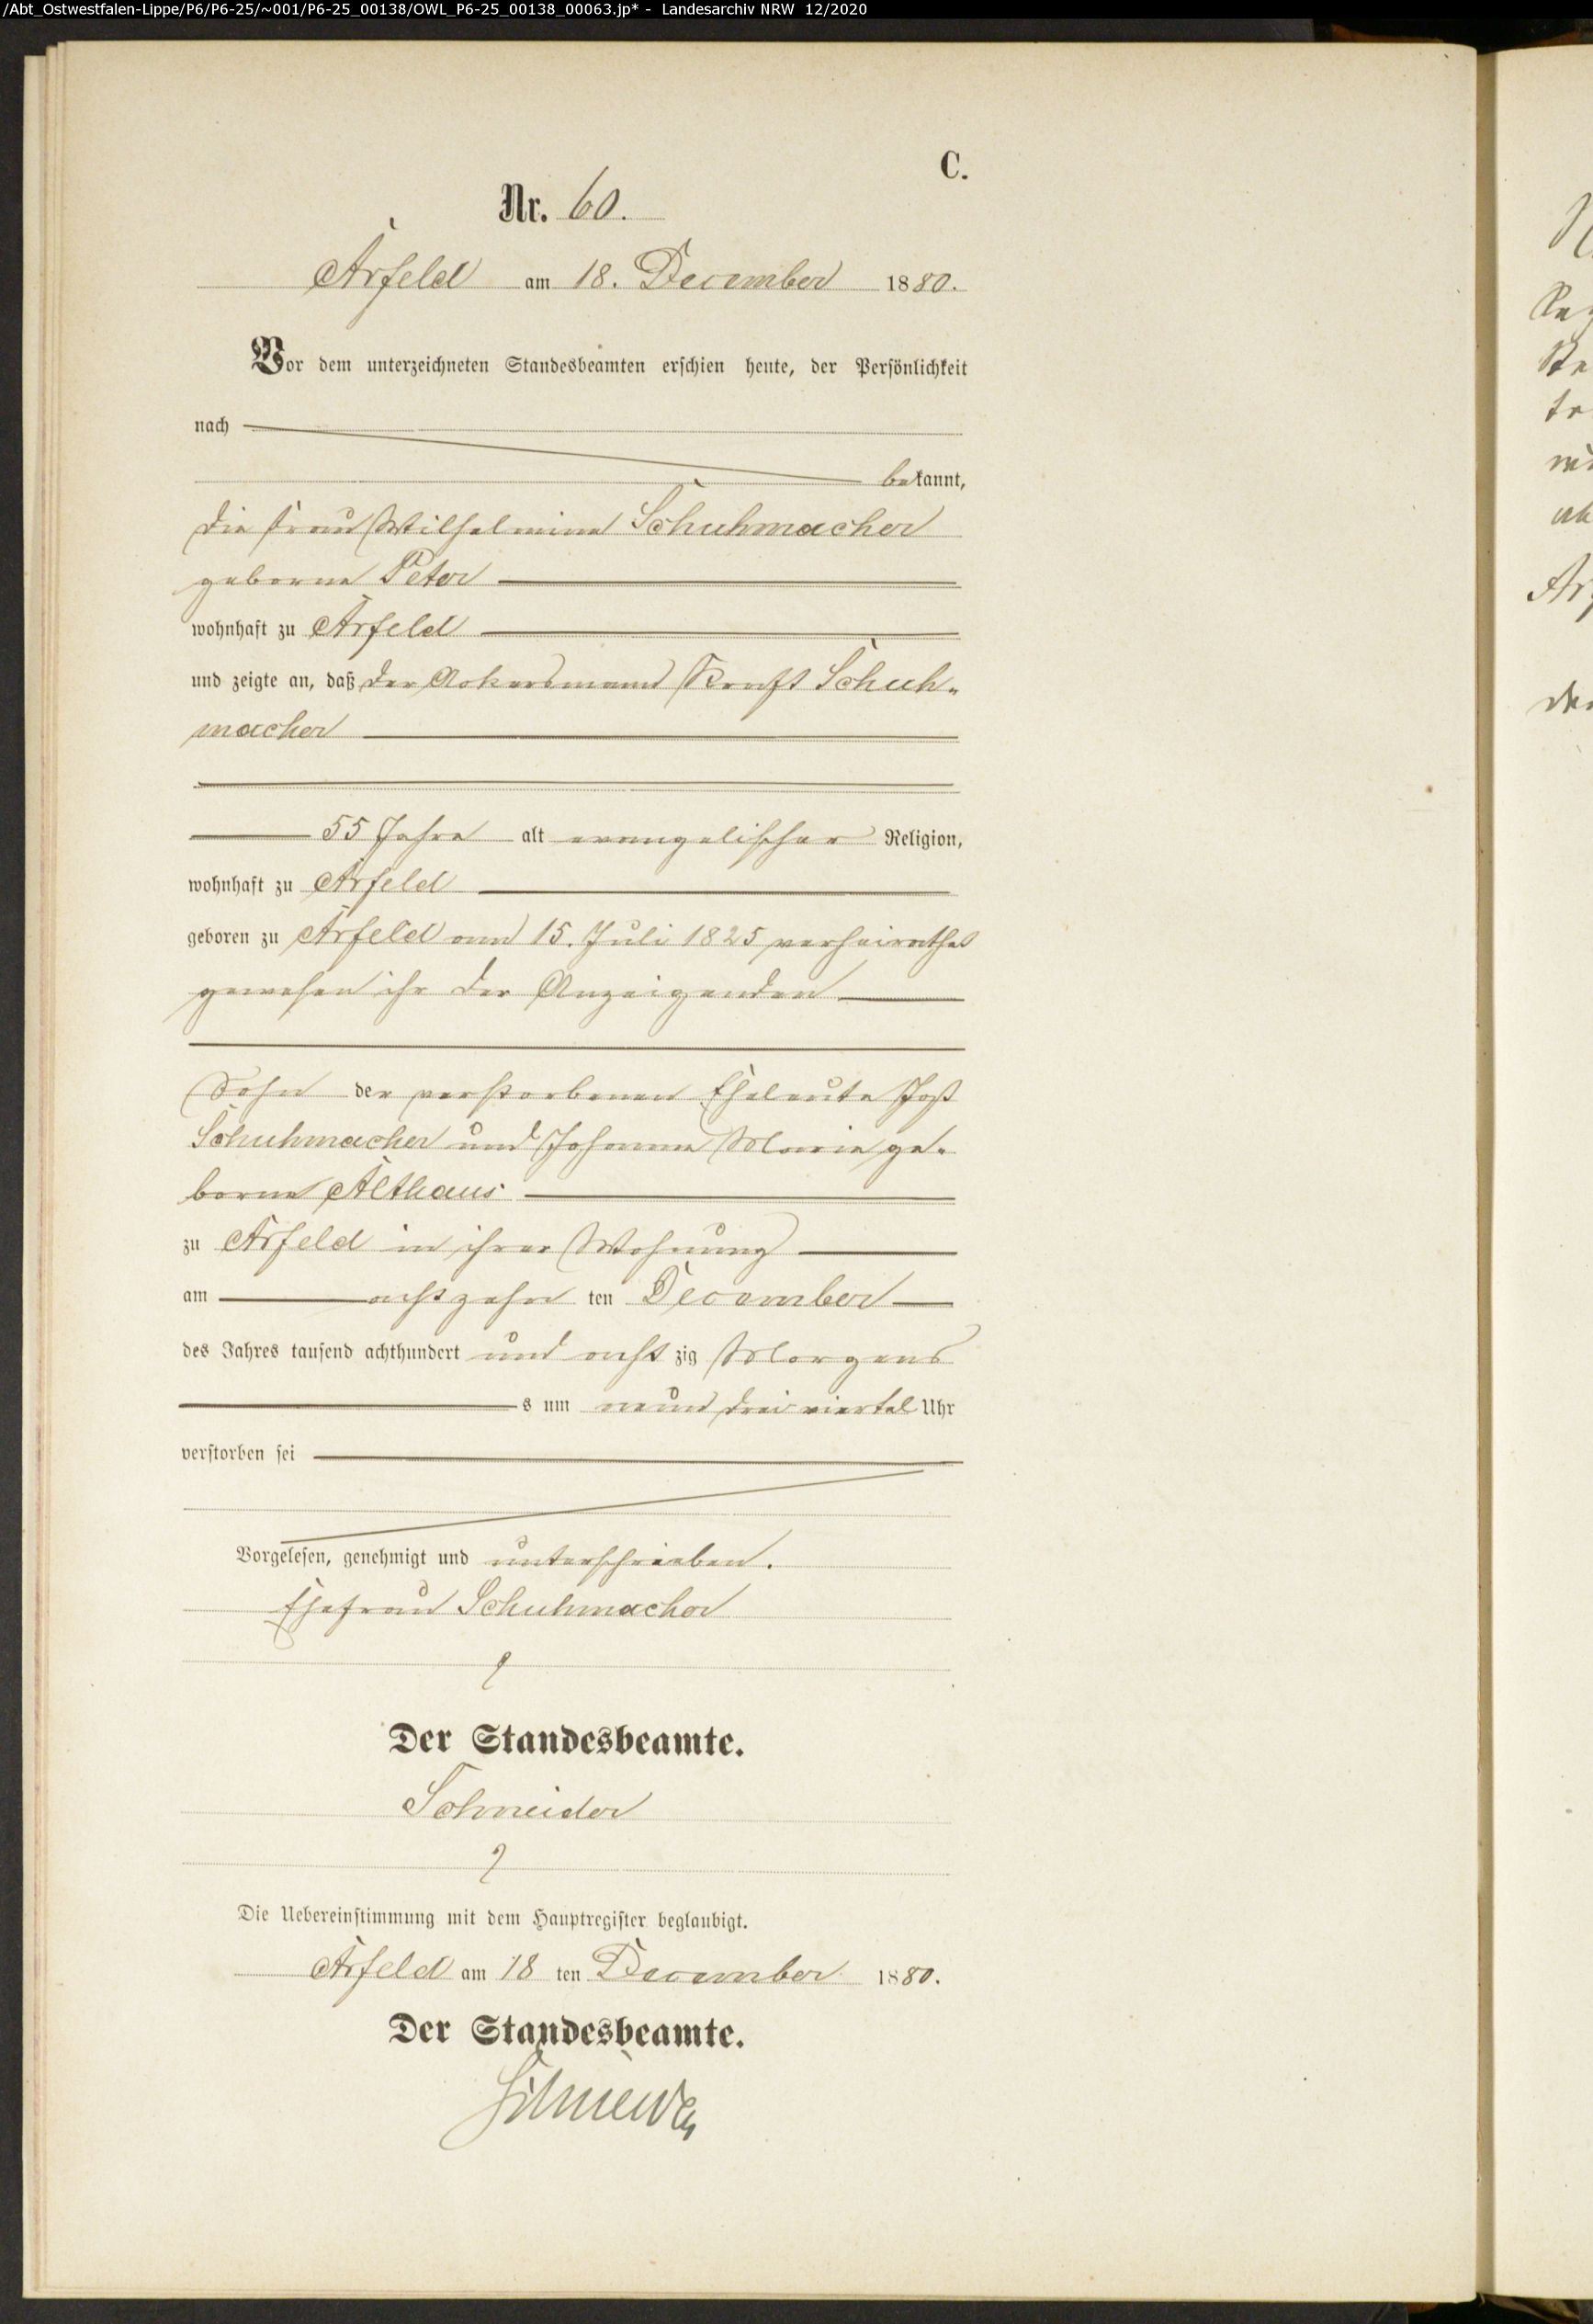 /Abt_Ostwestfalen-Lippe/P6/P6-25/~001/P6-25_00138/OWL_P6-25_00138_00063.jp* - Landesarchiv NRW 12/2020
C.
Nr. 60.
Arfeld am 18. December 1880.
Vor dem unterzeichneten Standesbeamten erschien heute, der Persönlichkeit
nach
bekannt,
die Frau Wilhelmine Schuhmacher
geborne Peter
wohnhaft zu Arfeld
und zeigte an, daß der Ackersmann Kraft Schuh-
macher
55 Jahre alt evangelischer Religion,
wohnhaft zu Arfeld
geboren zu Arfeld am 15. Juli 1825 verheirathet
gewesen ihr der Anzeigenden
Sohn der verstorbenen Eheleute Jost
Schuhmacher und Johanne Marie ge-
borne Althaus
zu Arfeld in ihrer Wohnung
am achtzehn ten December
des Jahres tausend achthundert und acht zig Morgens
s um neun drei viertel Uhr
verstorben sei
Vorgelesen, genehmigt und unterschrieben.
Ehefrau Schuhmacher
Der Standesbeamte.
Schneider
Die Uebereinstimmung mit dem Hauptregister beglaubigt.
Arfeld am 18 ten December 1880.
Der Standesbeamte.
Schneider